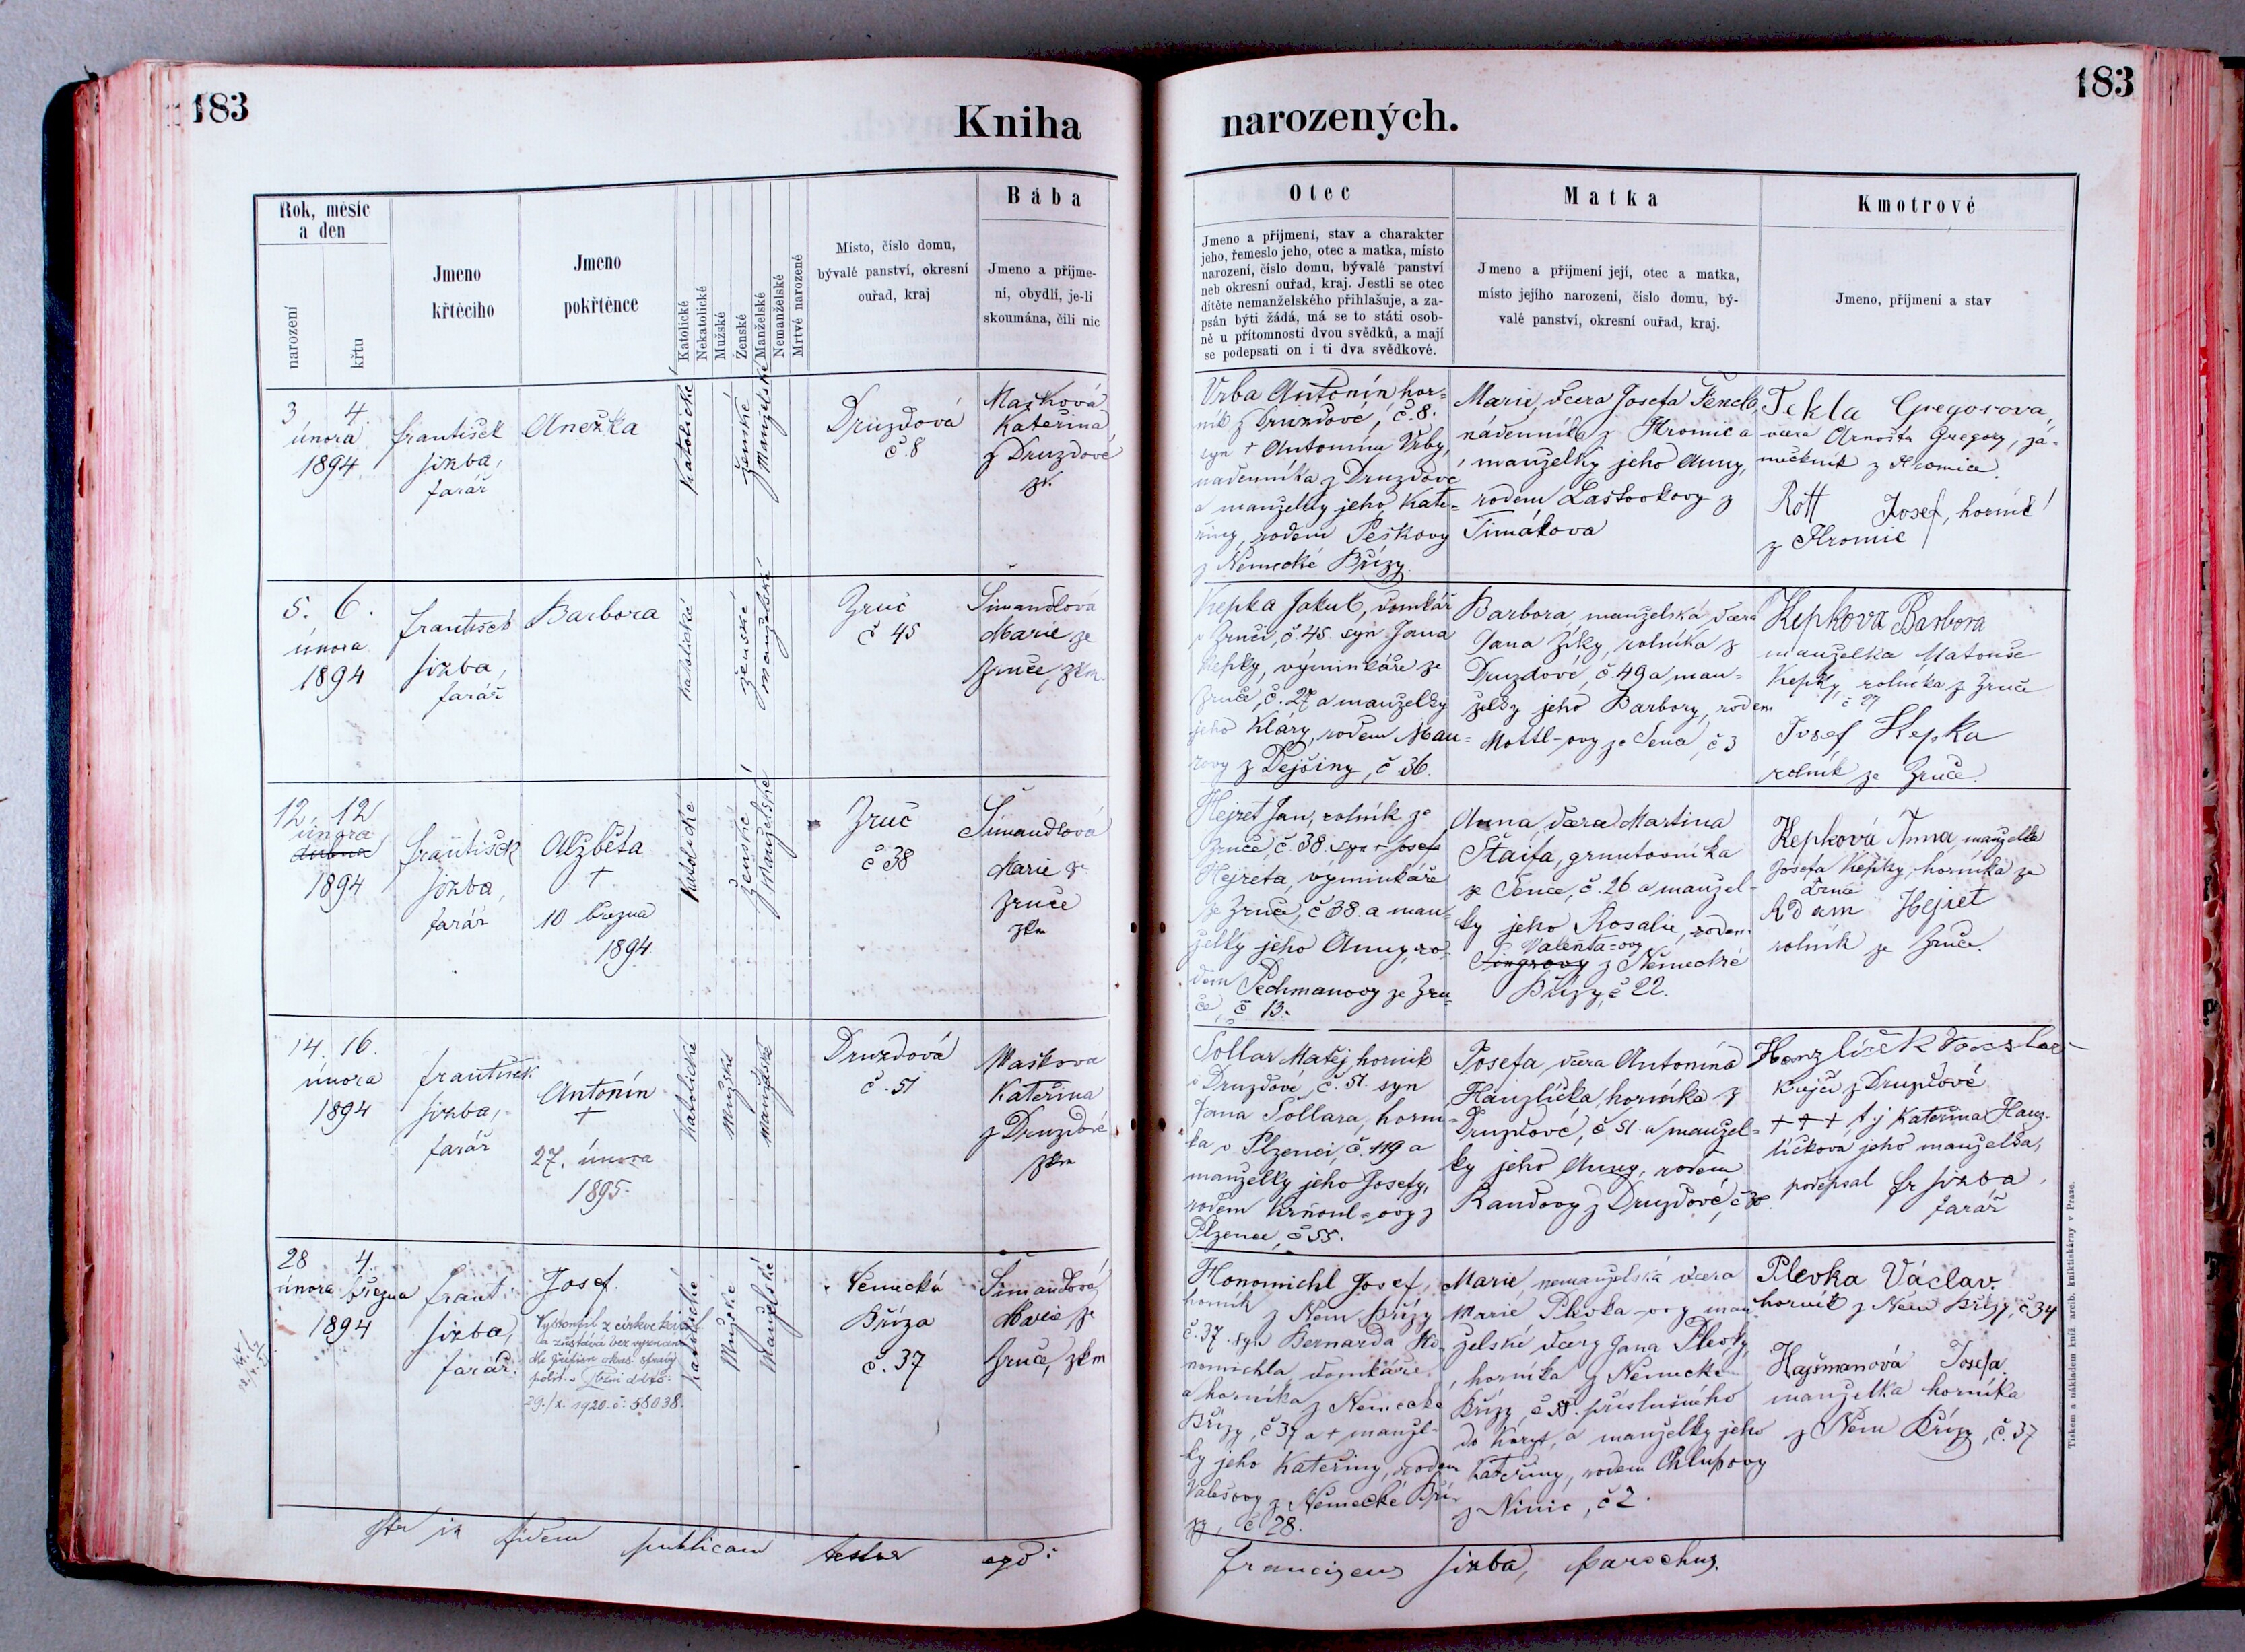 183
Kniha
Rok, měsíc
a den
narození
křtu
Jmeno
křtěcího
Jmeno
pokřtěnce
Katolické
Nekatolické
Mužské
Ženské
Manželské
Nemanželské
Mrtvé narozené
Místo, číslo domu,
bývalé panství, okresní
ouřad, kraj
Bába
Jmeno a příjme-
ní, obydlí, je-li
skoumána, čili nic
3 4.
února
1894
František
farář
Anežka
Katolické
ženské
Manželské
Druzdová
č. 8
Mašková
Kateřina
z Druzdové
zk.
5. 6.
února
1894
František
farář
Barbora
katolické
ženské
manželské
Zruč
č 45
Šimandlová
Marie ze
Zruče, zkm.
12. 12
února
dubna
1894
František
farář
Alžběta
†
10. března
1894
Katolické
Ženské
Manželské
Zruč
č 38
Šimandlová
Marie ze
Zruče
zkm
14. 16.
února
1894
František
farář
Antonín
†
27. února
1895.
katolické
Mužské
manželské
Druzdová
č. 51
Mašková
Kateřina
z Druzdové
zkm
28 4.
února března
1894
Frant.
farář.
Josef.
Vystoupil z církve
a zůstává bez vyznání
dle okres. správy
polit. v Plzni ddto:
29./X. 1920. č: 58038.
Katolické
Mužské
Manželské
Německá
Bříza
č. 37
Šimandlová
Marie ze
Zruče, zkm
in fidem publicam testor ego:
narozených.
183
Otec
Jmeno a příjmení, stav a charakter
jeho, řemeslo jeho, otec a matka, místo
narození, číslo domu, bývalé panství
neb okresní ouřad, kraj. Jestli se otec
dítěte nemanželského přihlašuje, a za-
psán býti žádá, má se to státi osob-
ně u přítomnosti dvou svědků, a mají
se podepsati on i ti dva svědkové.
Matka
Jmeno a příjmení její, otec a matka,
místo jejího narození, číslo domu, bý-
valé panství, okresní ouřad, kraj.
Kmotrové
Jmeno, příjmení a stav
Vrba Antonín hor-
ník z Druzdové, č. 8.
syn † Antonína Vrby,
nádenníka z Druzdové
a manželky jeho Kate-
řiny, rodem Peškovy
z Německé Břízy.
Marie, dcera Josefa Fencla,
nádenníka z Hromic a
manželky jeho Anny,
rodem Laštovkovy z
Timákova
Tekla Gregorova,
dcera Arnošta Gregory, zá-
mečník z Hromice.
Rott Josef, horník
z Hromic
Kepka Jakub, domkář
v Zruči, č. 45. syn Jana
Kepky, výminkáře ze
Zruče, č. 27 a manželky
jeho Kláry, rodem Mau-
rovy z Dejšiny, č. 36.
Barbora, manželská dcera
Jana Zíky, rolníka z
Druzdové, č. 49 a man-
želky jeho Barbory, rodem
Mottl-ovy ze Sena, č 3
Kepkova Barbora
manželka Matouše
Kepky, rolníka ze Zruče
č 27
Josef Kepka
rolník ze Zruče.
Hejret Jan, rolník ze
Zruče č. 38. syn † Josefa
Hejreta, výminkáře
ze Zruče, č 38. a man-
želky jeho Anny, ro-
dem Pechmanovy ze Zru-
če, č 13.
Anna, dcera Martina
Štaifa, gruntovníka
ze Sence, č. 26 a manžel-
ky jeho Rosalie, rodem
Valenta-ovy
z Německé
Břízy, č 22.
Kepková Anna, manželka
Josefa Kepky, horníka ze
Zruče
Adam Hejret
rolník ze Zruče.
Sollar Matěj, horník
v Druzdové, č. 51. syn
Jana Sollara, horní-
ka v Plzenci, č. 119 a
manželky jeho Josefy,
rodem Krňoul-ovy z
Plzence, č 55.
Josefa, dcera Antonína
Hanzlíčka, horníka z
Druzdové, č 51. a manžel-
ky jeho Anny, rodem
Randovy z Druzdové, č 30.
Hanzlíček
krejčí z Druzdové
† † †, t.j. Kateřina Hanz-
líčková jeho manželka,
podepsal Fr
farář
Honomichl Josef,
horník z Něm. Břízy
č. 37. syn Bernarda Ho-
nomichla, domkáře
a horníka z Německé
Břízy, č 37 a † manžel-
ky jeho Kateřiny, rodem
Valešovy z Německé Bří-
zy, č 28.
Marie, nemanželská dcera
Marie Plevka-ovy man-
želské dcery Jana Plevky,
horníka z Německé
Břízy, č 58. příslušného
do Koryt, a manželky jeho
Kateřiny, rodem Chlupovy
z Nínic, č 2.
Plevka Václav
horník z Něm Břízy, č 34
Hajšmanová Josefa.
manželka horníka
z Něm Břízy, č. 37
parochus.
Tiskem a nákladem kníž. arcib. knihtiskárny v Praze.